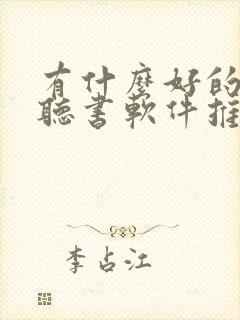 有什麼好的
聽書軟件推
李占江